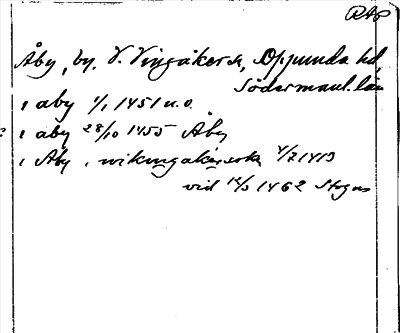 RAP
Åby, by. V. Vingåkers sn, Oppunda hd,
Södermanl. län
i aby 1/1 1451 u.o.
i aby 28/10 1455 Åby
i Åby, wikingakers sokn 4/2 1413
vid 12/3 1462